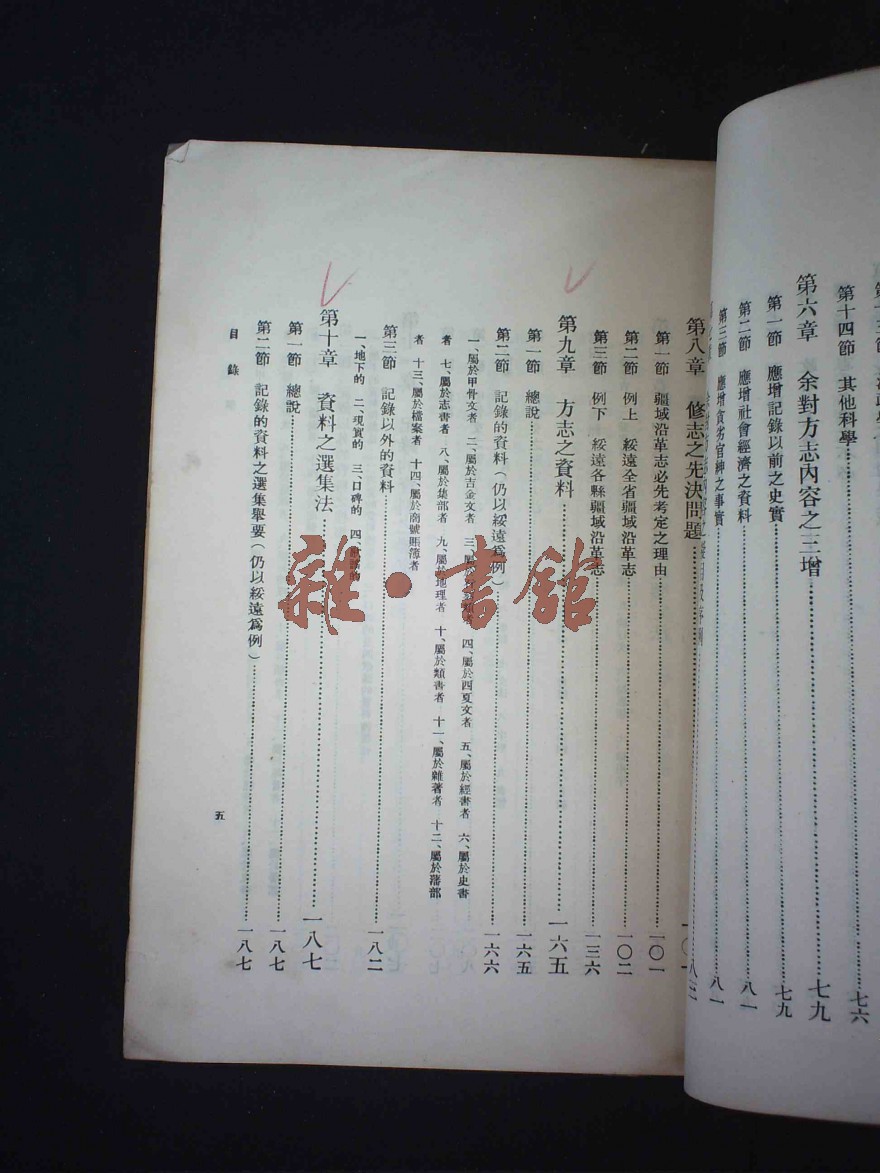 第十四節　其他科學 七六
第六章　余對方志內容之三增 七九
第一節　應增記錄以前之史實 七九
第二節　應增社會經濟之資料 八一
第三節　應增貪劣官紳之事實 八一
第八章　修志之先決問題
第一節　疆域沿革志必先考定之理由 一〇一
第二節　例上　綏遠全省疆域沿革志 一〇二
第三節　例下　綏遠各縣疆域沿革志 一三六
第九章　方志之資料 一六五
第一節　總說 一六五
第二節　記錄的資料（仍以綏遠爲例） 一六六
一、屬於甲骨文者　二、屬於吉金文者　三、屬於　四、屬於西夏文者　五、屬於經書者　六、屬於史書
者　七、屬於志書者　八、屬於集部者　九、屬於地理者　十、屬於類書者　十一、屬於雜著者　十二、屬於藩部
者　十三、屬於檔案者　十四、屬於商號賬簿者
第三節　記錄以外的資料 一八二
一、地下的　二、現實的　三、口碑的　四、
第十章　資料之選集法 一八七
第一節　總說 一八七
第二節　記錄的資料之選集舉要（仍以綏遠爲例） 一八七
目錄
五
雜·書館